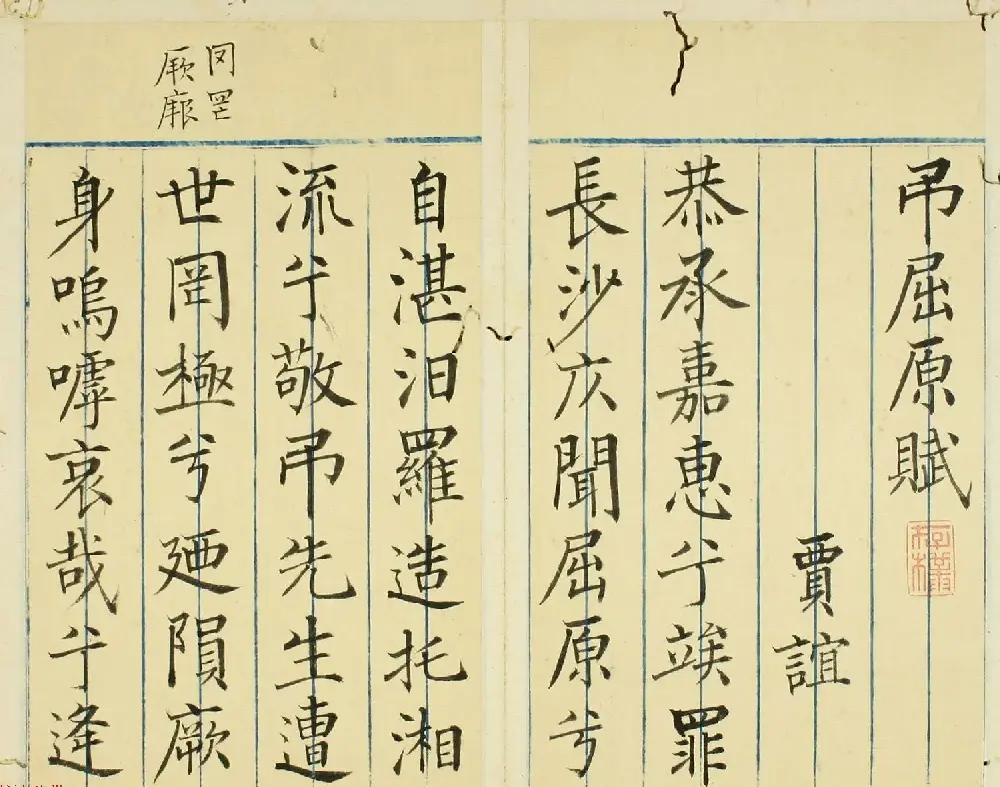 吊屈原賦
賈誼
恭承嘉惠兮竢罪
長沙仄聞屈原兮
自湛汨羅造托湘
流兮敬吊先生遭
世罔極兮廼隕厥
身嗚嘑哀哉兮逢
厥